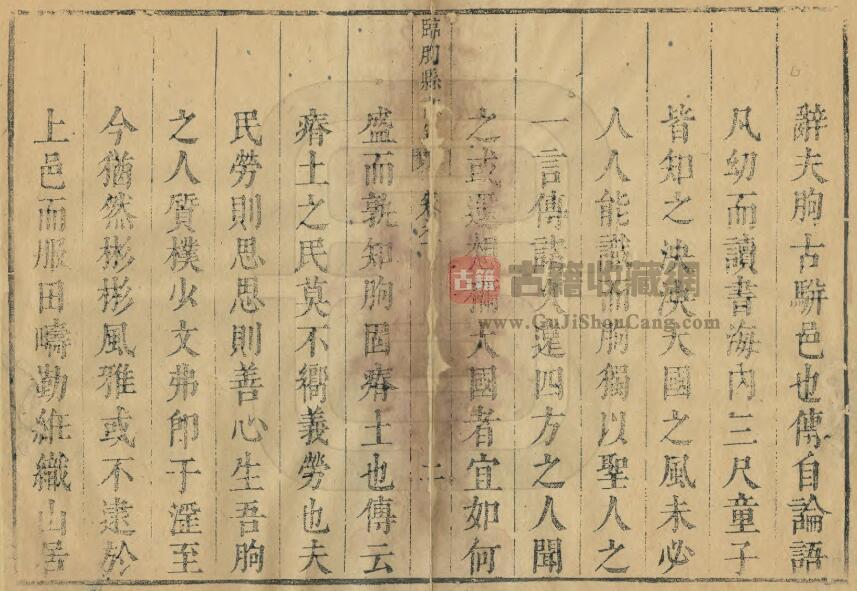 辭夫朐古駢邑也傳自論語
凡幼而讀書海內三尺童子
皆知之泱泱大國之風未必
人人能識而朐獨以聖人之
一言傳誦久遠四方之人聞
之或遥想爲大國者宜如何
臨朐縣
二
盛而孰知朐固瘠土也傳云
瘠土之民莫不嚮義勞也夫
民勞則思思則善心生吾朐
之人質樸少文弗即于滛至
今猶然彬彬風雅或不逮於
上邑而服田疇勤維織山居
古籍
古籍收藏網
www.GuJiShouCang.com